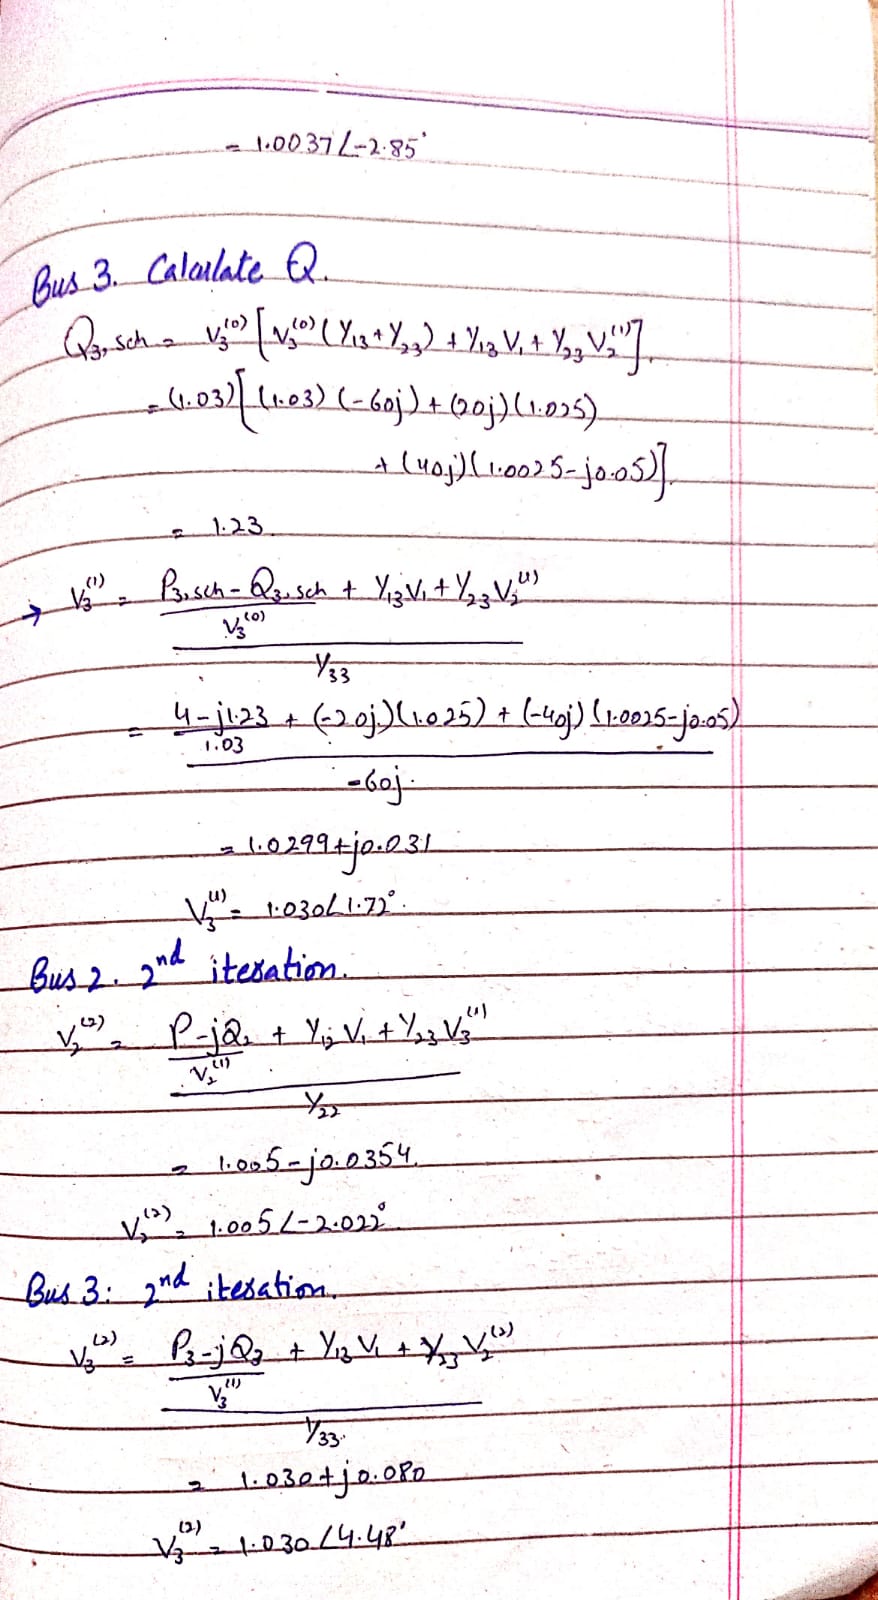 = 1.0037∠-2.85°
Bus 3. Calculate Q.
Q₃,sch = V₃⁽⁰⁾[V₃⁽⁰⁾(Y₁₃+Y₂₃) + Y₁₃V₁ + Y₂₃V₂⁽¹⁾].
= (1.03)[(1.03)(-60j) + (20j)(1.025)
+ (40j)(1.0025-j0.05)].
= 1.23.
→ V₃⁽¹⁾ = P₃,sch - Q₃,sch + Y₁₃V₁ + Y₂₃V₂⁽¹⁾
V₃⁽⁰⁾
Y₃₃
= 4-j1.23 + (-20j)(1.025) + (-40j)(1.0025-j0.05)
1.03
-60j.
= 1.0299+j0.031
V₃⁽¹⁾ = 1.030∠1.72°.
Bus 2. 2nd iteration.
V₂⁽²⁾ = P-jQ₂ + Y₁₂V₁ + Y₂₃V₃⁽¹⁾
V₂⁽¹⁾
Y₂₂
= 1.005-j0.0354.
V₂⁽²⁾ = 1.005∠-2.022°
Bus 3: 2nd iteration.
V₃⁽²⁾ = P₃-jQ₃ + Y₁₃V₁ + Y₂₃V₂⁽²⁾
V₃⁽¹⁾
Y₃₃.
= 1.030+j0.080
V₃⁽²⁾ = 1.030∠4.48°